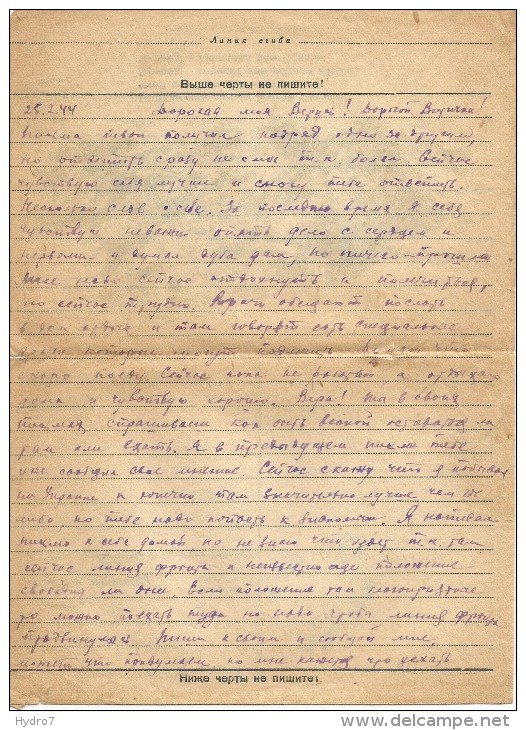 Линия сгиба
Выше черты не пишите!
25.2.44 Дорогая моя Верусь! Дорогой
Письма твои получил подряд одно за другим,
но ответить сразу не смог т.к. болел. Сейчас
чувствую себя лучше и смогу тебе ответить.
Несколько слов о себе. За последнее время я себя
чувствую неважно опять дело с сердцем и
нервами и думал дуба дам, но ничего – прошло
Мне надо сейчас отдохнуть и
но сейчас трудно. Врачи обещают послать
в дом отдыха и там говорят есть специальные
врачи которые могут
скоро поеду. Сейчас пока не работаю я отдыхаю
дома и чувствую хорошо. Вера! Ты в своих
письмах спрашиваешь как быть весной оставаться
там или ехать. Я в предыдущем письме тебе
уже сообщил свое мнение. Сейчас скажу что я побывал
на Украине и конечно там значительно лучше чем где
либо но тебе надо попасть к знакомым. Я написал
письмо к себе домой но не знаю что будет т.к. там
сейчас линия фронта и неизвестно еще положение
свободна ли она. Если положение там благоприятное
то можно поехать туда но надо чтобы линия фронта
продвинулась. Пиши к своим и сообщай мне,
может что подумаем, но мне кажется что уехать
Ниже черты не пишите!
Hydro7
www.delcampe.net